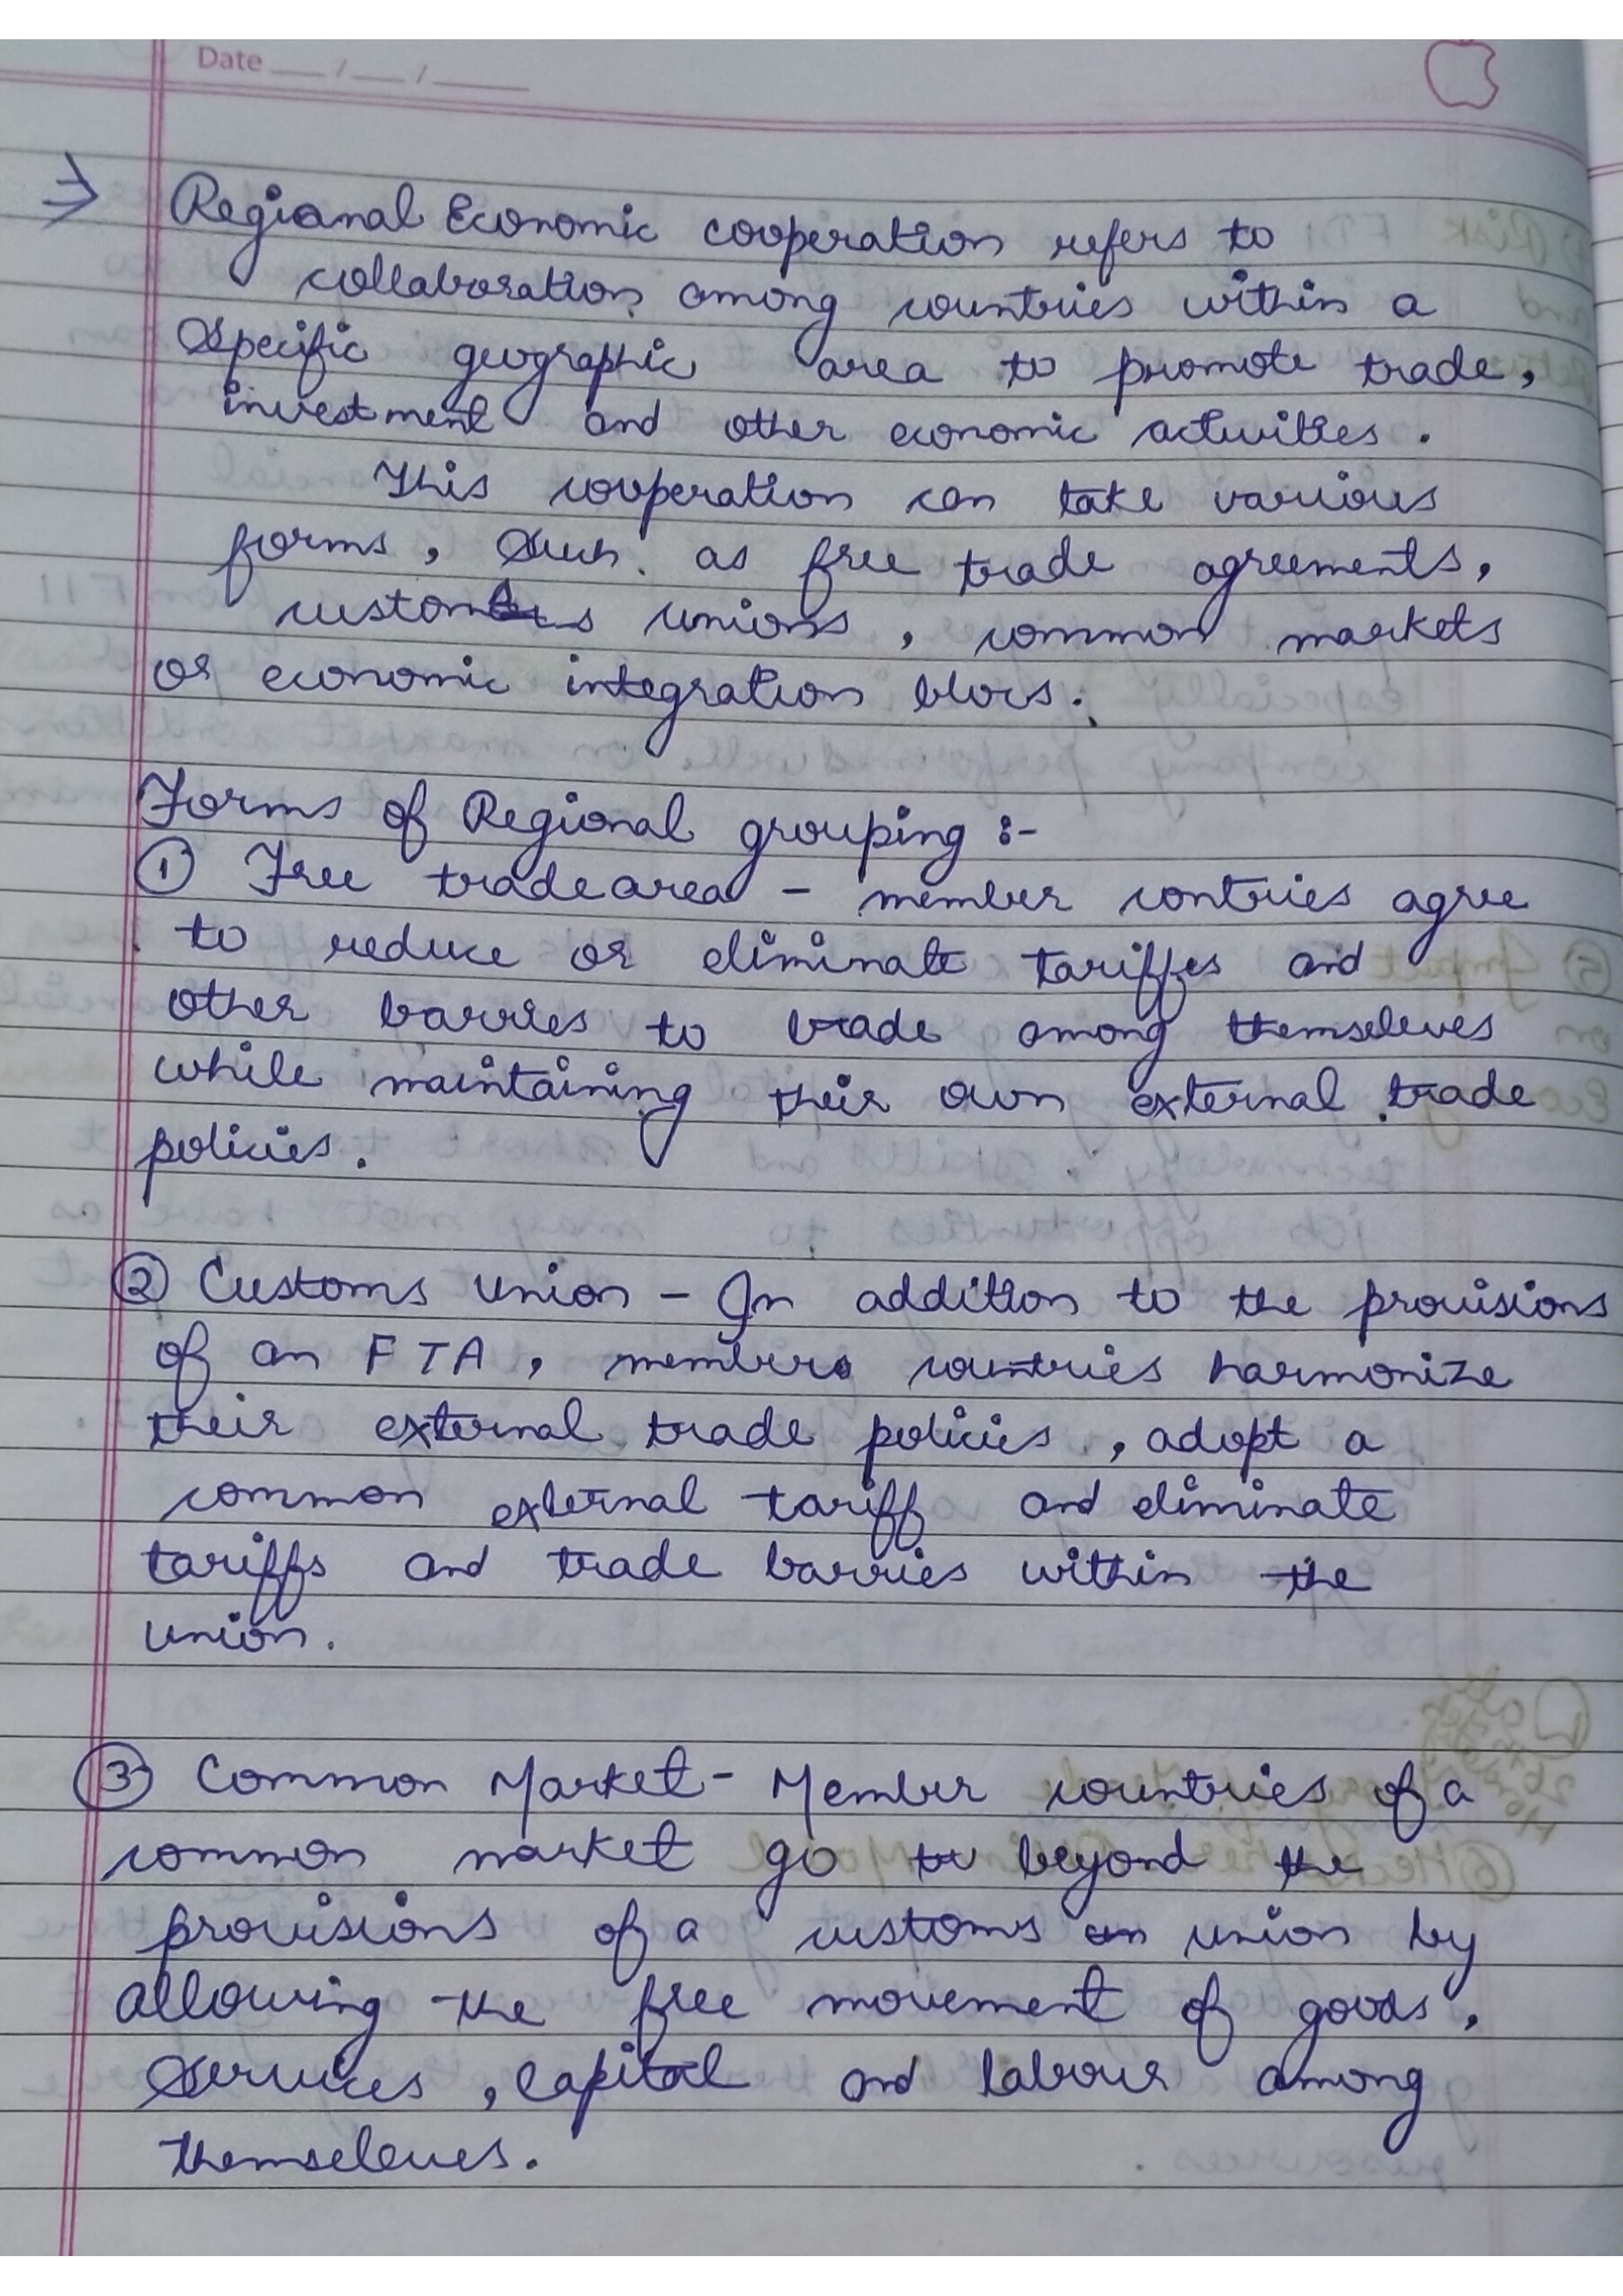 Date __/__/____
⇒ Regional Economic cooperation refers to
collaboration among countries within a
Specific geographic area to promote trade,
investment and other economic activities.
This cooperation can take various
forms, Such as free trade agreements,
customs unions, common markets
or economic integration blocs.
Forms of Regional grouping :-
① Free trade area - member contries agree
to reduce or eliminate tariffes and
other barries to trade among themseleves
while maintaining their own external trade
policies.
② Customs Union - In addition to the provisions
of an FTA, members countries harmonize
their external trade policies, adopt a
common external tariff and eliminate
tariffs and trade barries within the
union.
③ Common Market - Member countries of a
common market go to beyond the
provisions of a customs un union by
allowing the free movement of goods,
Services, Capital and labour among
themseleves.